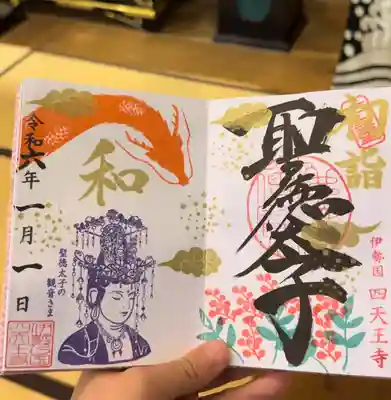 初詣
聖徳太子
伊勢国 四天王寺
和
令和六年一月一日
聖徳太子の
観音さま